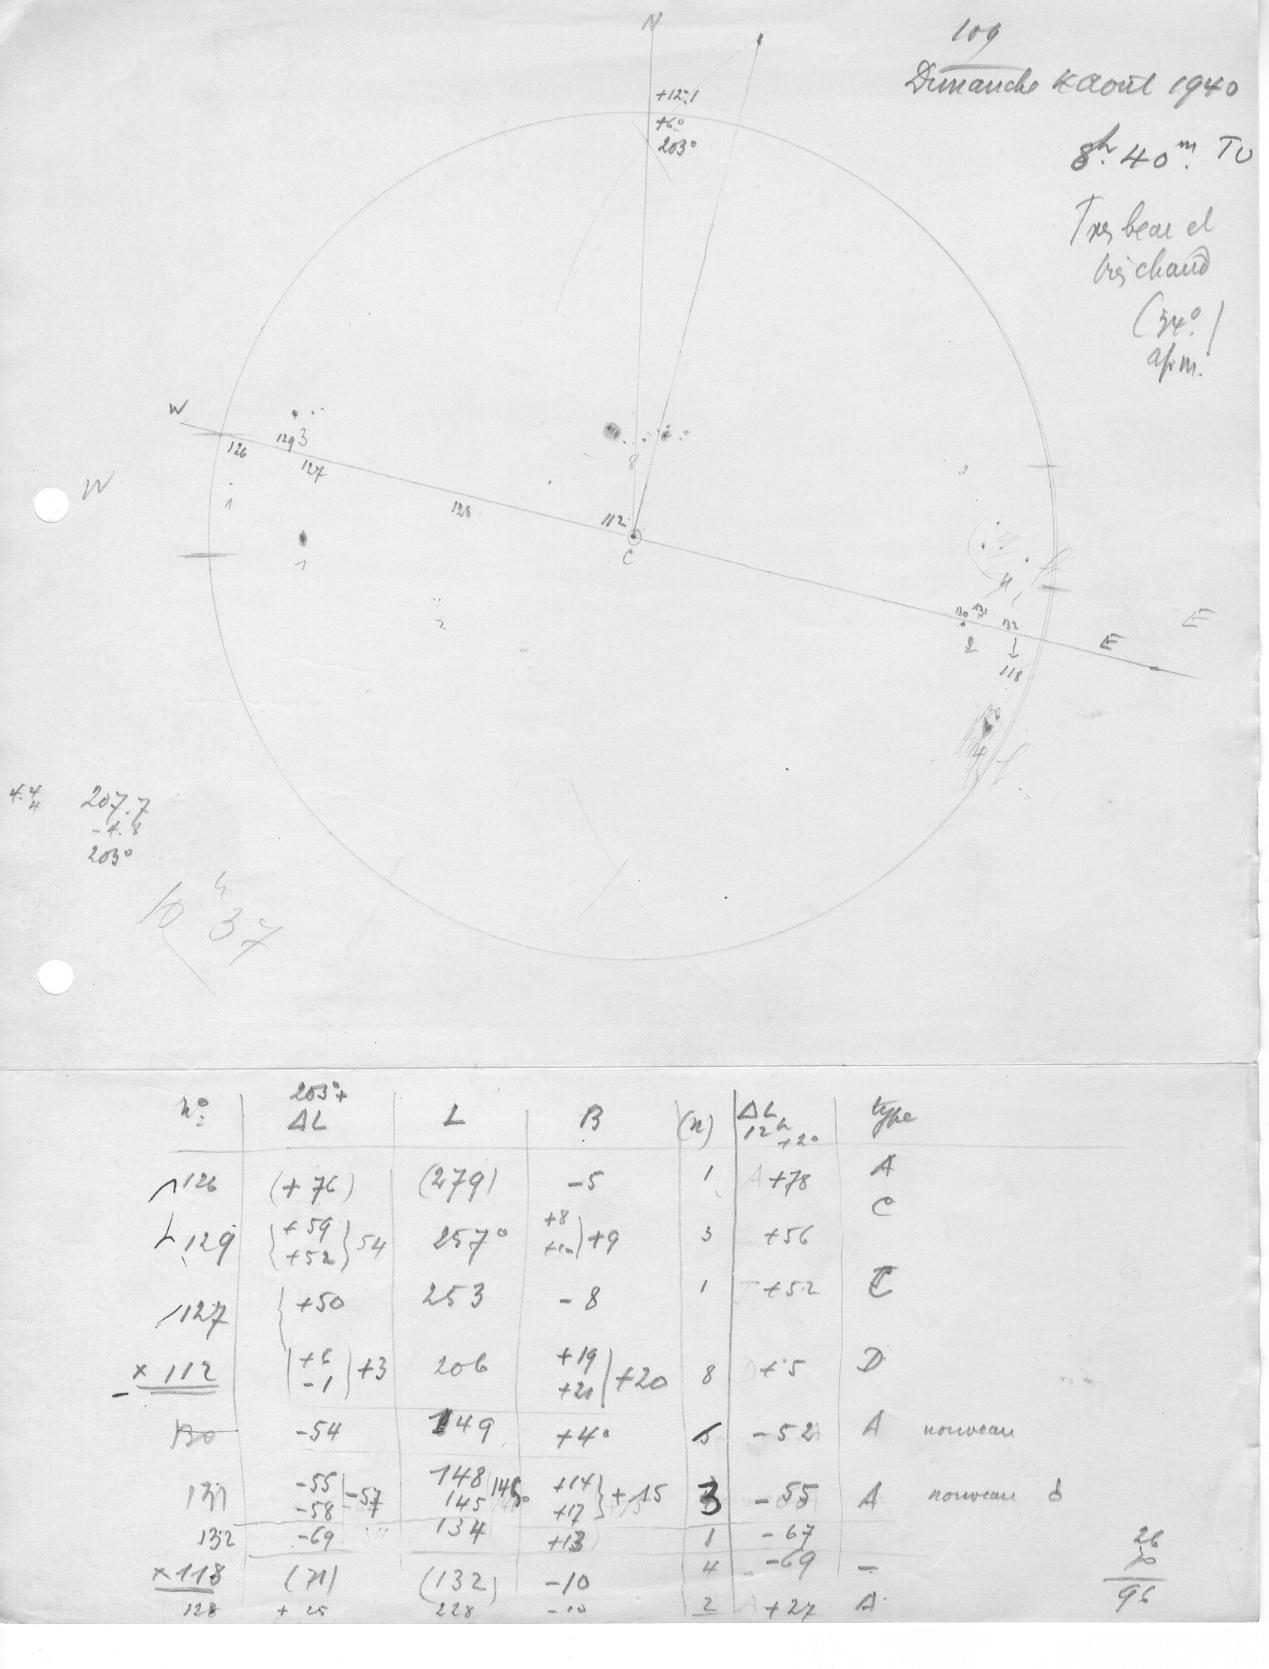 N
109
Dimanche 4 Août 1940
+12.1
+6°
203°
8h. 40m. TU
Très beau et
très chaud
(34°)
apm.
W
W
126
129 3
127
1
1
128
2
8
112
C
3
4
130 131 132
2
1
118
4
E
E
4.4
207.7
-4.8
203°
10h 37
n°: 203°+ ΔL L B (n) ΔL 12h +2° type
126 (+76) (279) -5 1 +78 A
129 +59 +52 } 54 257° +8 +10 } +9 3 +56 C
127 +50 253 -8 1 +52
× 112 +6 -1 +3 206 +19 +21 +20 8 +5 D
130 -54 149 +4° -52 A nouveau
131 -55 -58 -57 148 145 +14 +17 } +15 3 -55 A nouveau
132 -69 134 +13 1 -67
×118 (71) (132) -10 4 -69 –
128 +25 228 -10 2 +27 A
26
70
96